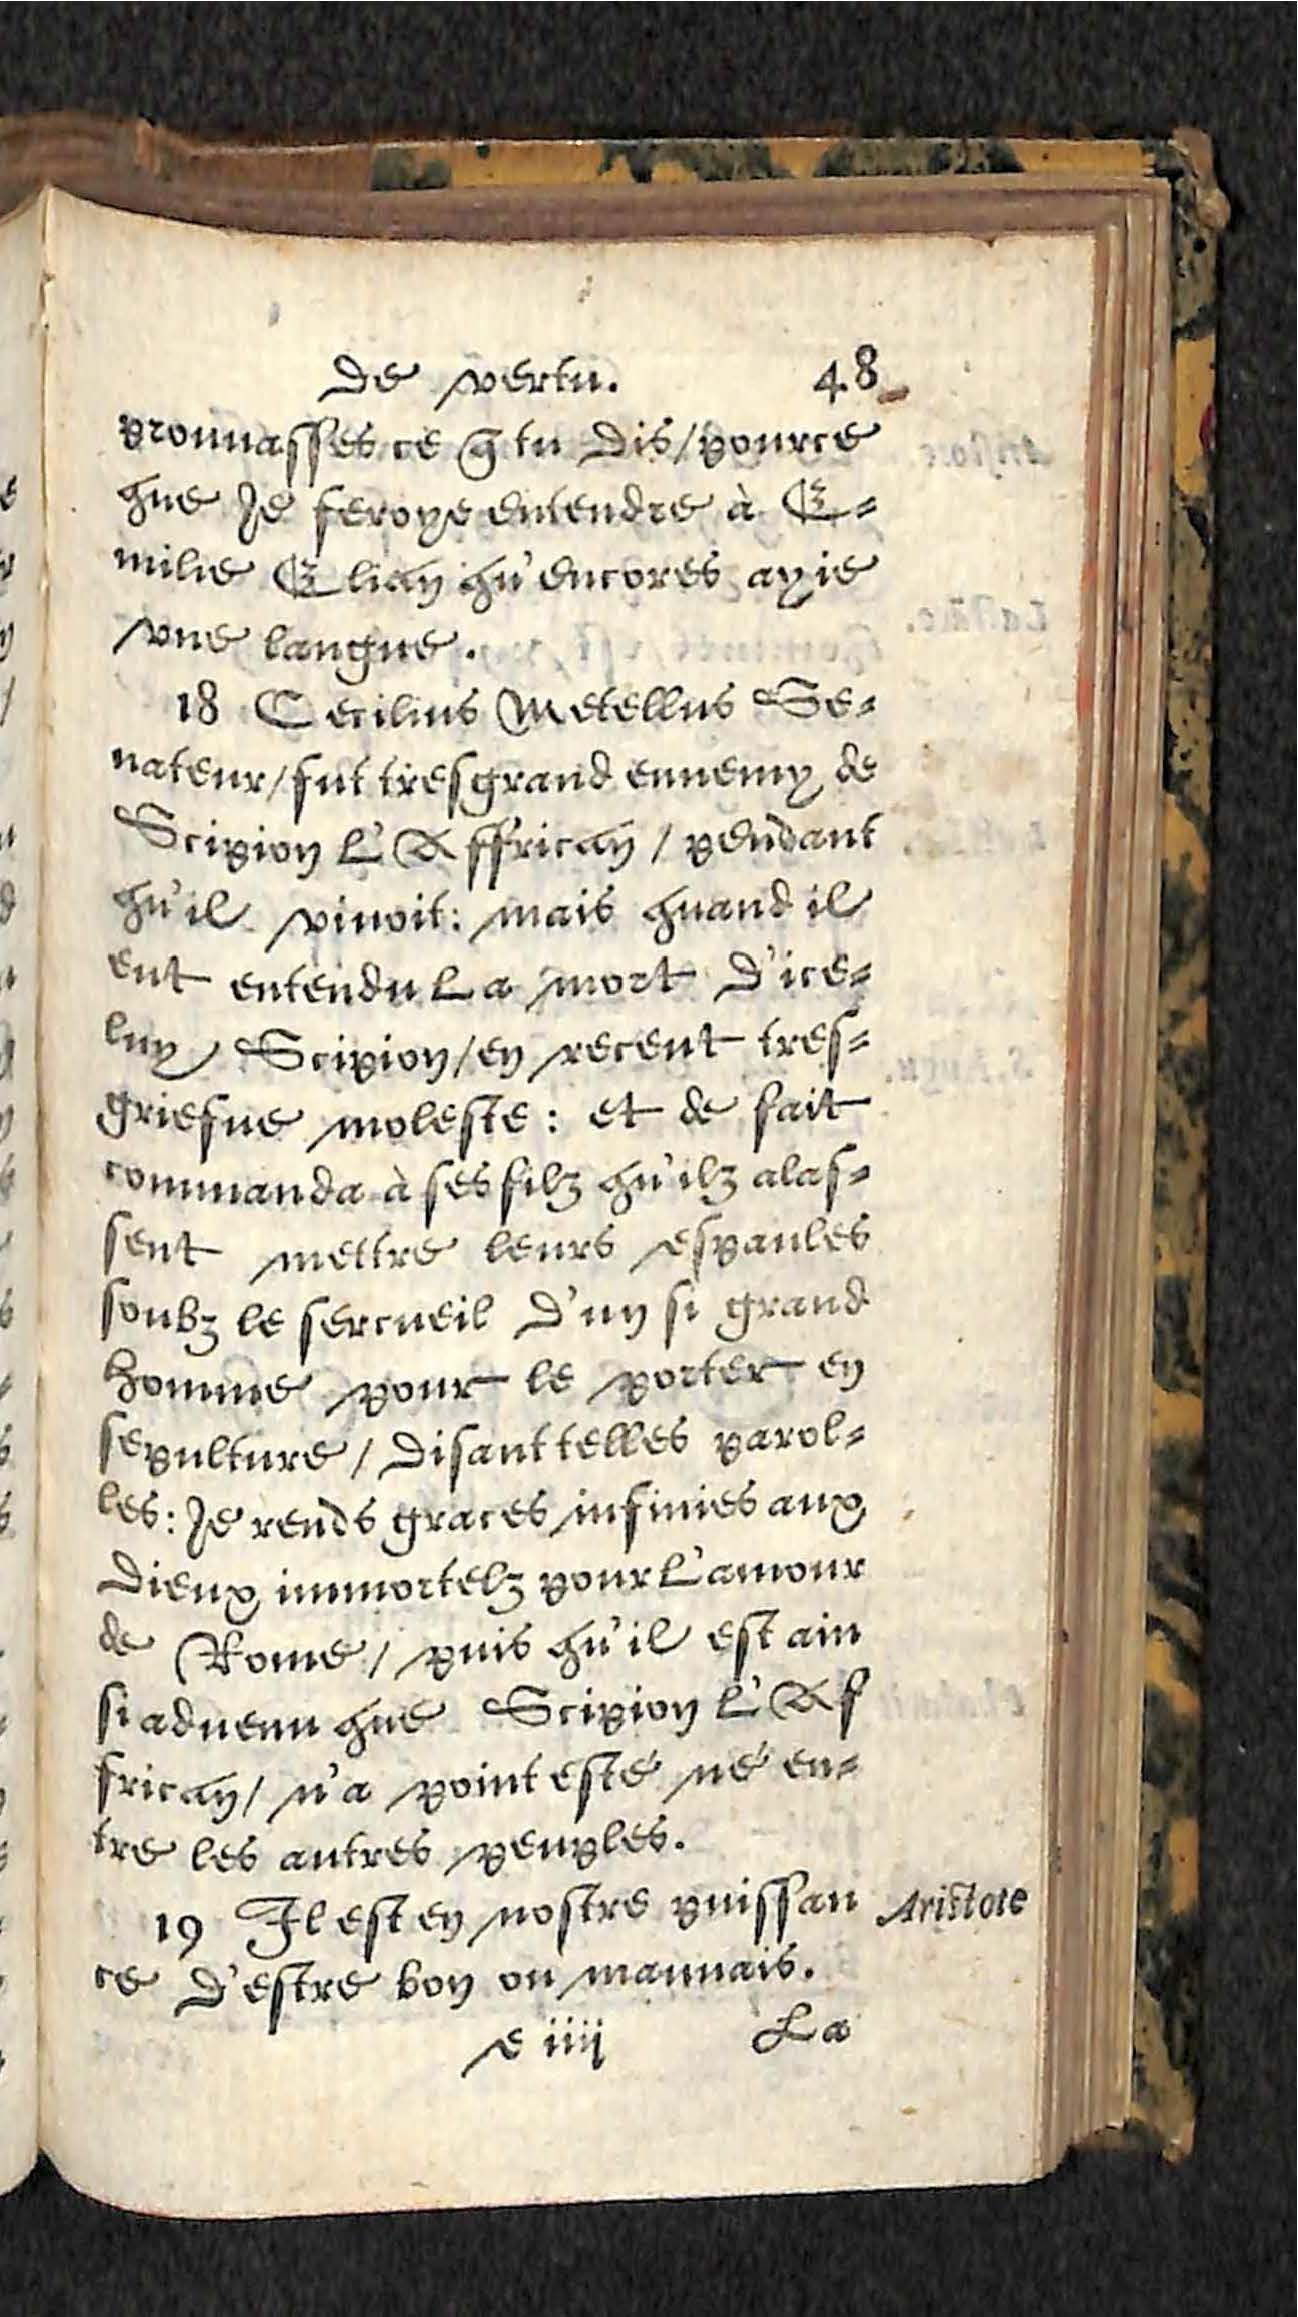 De vertu. 48
prouuasses ce q̃ tu dis/pource
que Je feroye entendre à E-
milie Elian qu'encores ayie
vne langue.
18 Cecilius Metellus Se-
nateur/fut tresgrand ennemy de
Scipion L'Affrican/pendant
qu'il viuoit: mais quand il
eut entendu La mort D'ice-
luy Scipion/en receut tres-
griefue moleste: et de fait
commanda à ses filz qu'ilz alas-
sent mettre leurs espaules
soubz le sercueil D'un si grand
homme pour le porter en
sepulture/Disant telles parol-
les: Je rends graces infinies aux
Dieux immortelz pour L'amour
de Rome/puis qu'il est ain
si aduenu que Scipion L'Af
frican/n'a point esté né en-
tre les autres peuples.
19 Il est en nostre puissan
ce D'estre bon ou mauuais.
Aristote
e iiij La